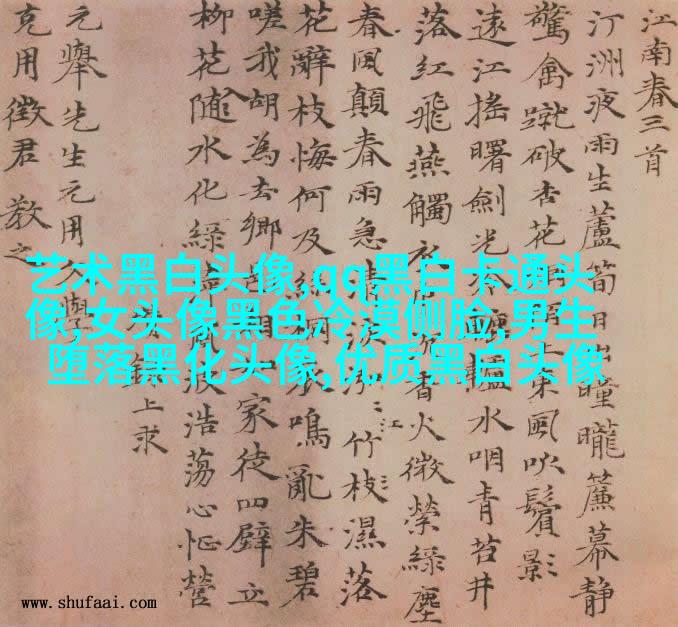 江南春三首
汀洲夜雨生蘆筍日出曈曨簾幕静
驚禽蹴破杏花上東風吹鬢影
遠江搖曙劍光轆轤水咽青苔井
落紅飛燕觸衣香火微縈綠塵
春風顛春雨急清淚泓江竹枝濕落
花辭枝悔何及絲桐哀鳴亂朱碧
嗟我胡為去鄉家徒四壁立
柳花隨水化綠風波浩蕩心怔營
錄上求
元舉先生元用文學
克用徵君教之
艺术黑白头像,qq黑白卡通头
像,女头像黑色冷漠侧脸,男生
堕落黑化头像,优质黑白头像
www.shufaai.com